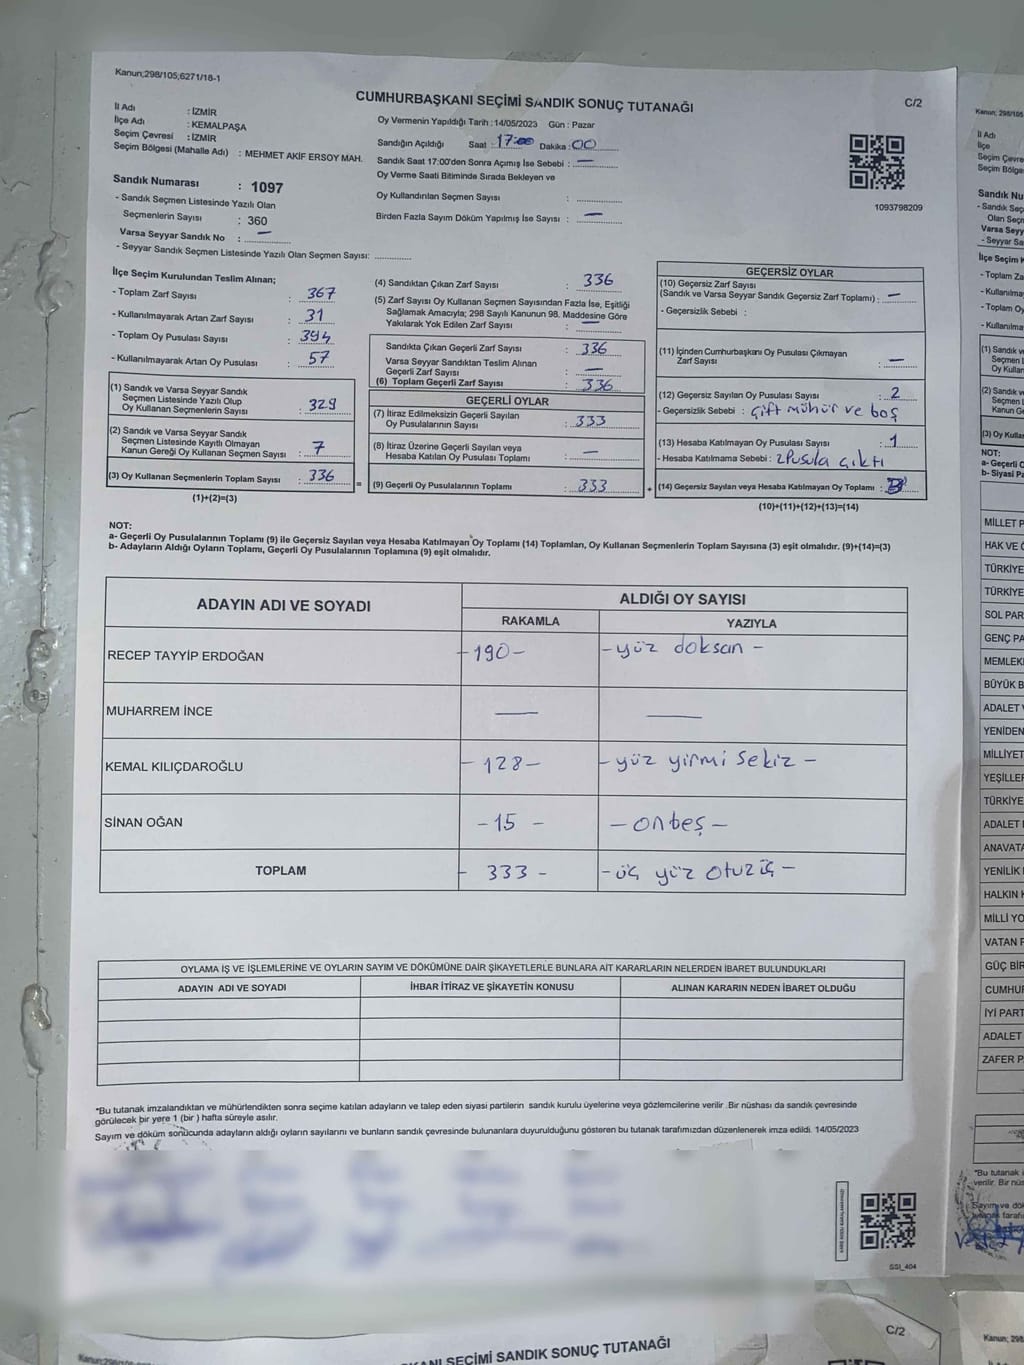 Kanun;298/105;6271/18-1
CUMHURBAŞKANI SEÇİMİ SANDIK SONUÇ TUTANAĞI
C/2
İl Adı : İZMİR
İlçe Adı : KEMALPAŞA
Seçim Çevresi : İZMİR
Seçim Bölgesi (Mahalle Adı) : MEHMET AKİF ERSOY MAH.
Oy Vermenin Yapıldığı Tarih : 14/05/2023 Gün : Pazar
Sandığın Açıldığı Saat : 17:00 Dakika : 00
Sandık Saat 17:00'den Sonra Açımış İse Sebebi : —
Oy Verme Saati Bitiminde Sırada Bekleyen ve
Oy Kullandırılan Seçmen Sayısı :
Birden Fazla Sayım Döküm Yapılmış İse Sayısı : —
1093798209
Sandık Numarası : 1097
- Sandık Seçmen Listesinde Yazılı Olan
Seçmenlerin Sayısı : 360
Varsa Seyyar Sandık No : —
- Seyyar Sandık Seçmen Listesinde Yazılı Olan Seçmen Sayısı:
İlçe Seçim Kurulundan Teslim Alınan;
- Toplam Zarf Sayısı : 367
- Kullanılmayarak Artan Zarf Sayısı : 31
- Toplam Oy Pusulası Sayısı : 394
- Kullanılmayarak Artan Oy Pusulası : 57
(1) Sandık ve Varsa Seyyar Sandık
Seçmen Listesinde Yazılı Olup
Oy Kullanan Seçmenlerin Sayısı : 329
(2) Sandık ve Varsa Seyyar Sandık
Seçmen Listesinde Kayıtlı Olmayan
Kanun Gereği Oy Kullanan Seçmen Sayısı : 7
(3) Oy Kullanan Seçmenlerin Toplam Sayısı : 336
(1)+(2)=(3)
(4) Sandıktan Çıkan Zarf Sayısı : 336
(5) Zarf Sayısı Oy Kullanan Seçmen Sayısından Fazla İse, Eşitliği
Sağlamak Amacıyla; 298 Sayılı Kanunun 98. Maddesine Göre
Yakılarak Yok Edilen Zarf Sayısı : —
Sandıkta Çıkan Geçerli Zarf Sayısı : 336
Varsa Seyyar Sandıktan Teslim Alınan
Geçerli Zarf Sayısı : —
(6) Toplam Geçerli Zarf Sayısı : 336
GEÇERLİ OYLAR
(7) İtiraz Edilmeksizin Geçerli Sayılan
Oy Pusulalarının Sayısı : 333
(8) İtiraz Üzerine Geçerli Sayılan veya
Hesaba Katılan Oy Pusulası Toplamı : —
= (9) Geçerli Oy Pusulalarının Toplamı : 333
GEÇERSİZ OYLAR
(10) Geçersiz Zarf Sayısı
(Sandık ve Varsa Seyyar Sandık Geçersiz Zarf Toplamı) : —
- Geçersizlik Sebebi :
(11) İçinden Cumhurbaşkanı Oy Pusulası Çıkmayan
Zarf Sayısı : —
(12) Geçersiz Sayılan Oy Pusulası Sayısı : 2
- Geçersizlik Sebebi : çift mühür ve boş
(13) Hesaba Katılmayan Oy Pusulası Sayısı : 1
- Hesaba Katılmama Sebebi : 2 Pusula çıktı
+ (14) Geçersiz Sayılan veya Hesaba Katılmayan Oy Toplamı : 3
(10)+(11)+(12)+(13)=(14)
NOT:
a- Geçerli Oy Pusulalarının Toplamı (9) ile Geçersiz Sayılan veya Hesaba Katılmayan Oy Toplamı (14) Toplamları, Oy Kullanan Seçmenlerin Toplam Sayısına (3) eşit olmalıdır. (9)+(14)=(3)
b- Adayların Aldığı Oyların Toplamı, Geçerli Oy Pusulalarının Toplamına (9) eşit olmalıdır.
ADAYIN ADI VE SOYADI ALDIĞI OY SAYISI
RAKAMLA YAZIYLA
RECEP TAYYİP ERDOĞAN -190- -yüz doksan-
MUHARREM İNCE — —
KEMAL KILIÇDAROĞLU -128- -yüz yirmi sekiz-
SİNAN OĞAN -15- -onbeş-
TOPLAM -333- -üç yüz otuz üç-
OYLAMA İŞ VE İŞLEMLERİNE VE OYLARIN SAYIM VE DÖKÜMÜNE DAİR ŞİKAYETLERLE BUNLARA AİT KARARLARIN NELERDEN İBARET BULUNDUKLARI
ADAYIN ADI VE SOYADI İHBAR İTİRAZ VE ŞİKAYETİN KONUSU ALINAN KARARIN NEDEN İBARET OLDUĞU
*Bu tutanak imzalandıktan ve mühürlendikten sonra seçime katılan adayların ve talep eden siyasi partilerin sandık kurulu üyelerine veya gözlemcilerine verilir .Bir nüshası da sandık çevresinde
görülecek bir yere 1 (bir ) hafta süreyle asılır.
Sayım ve döküm sonucunda adayların aldığı oyların sayılarını ve bunların sandık çevresinde bulunanlara duyurulduğunu gösteren bu tutanak tarafımızdan düzenlenerek imza edildi. 14/05/2023
SSI_404
Kanun; 298/105
İl Adı
İlçe
Seçim Çevre
Seçim Bölges
Sandık Nu
- Sandık Seç
Olan Seç
Varsa Seyy
- Seyyar Sa
İlçe Seçim K
- Toplam Za
- Kullanılma
- Toplam Oy
- Kullanılma
(1) Sandık v
Seçmen L
Oy Kullan
(2) Sandık ve
Seçmen L
Kanun Ge
(3) Oy Kulla
NOT:
a- Geçerli O
b- Siyasi Pa
MİLLET P
HAK VE Ö
TÜRKİYE
TÜRKİYE
SOL PAR
GENÇ PA
MEMLEK
BÜYÜK B
ADALET V
YENİDEN
MİLLİYET
YEŞİLLER
TÜRKİYE
ADALET
ANAVATA
YENİLİK
HALKIN K
MİLLİ YO
VATAN P
GÜÇ BİR
CUMHUR
İYİ PART
ADALET
ZAFER P
*Bu tutanak
verilir. Bir nüs
Sayım ve dö
tarafı
C/2
KANI SEÇİMİ SANDIK SONUÇ TUTANAĞI
Kanun; 298